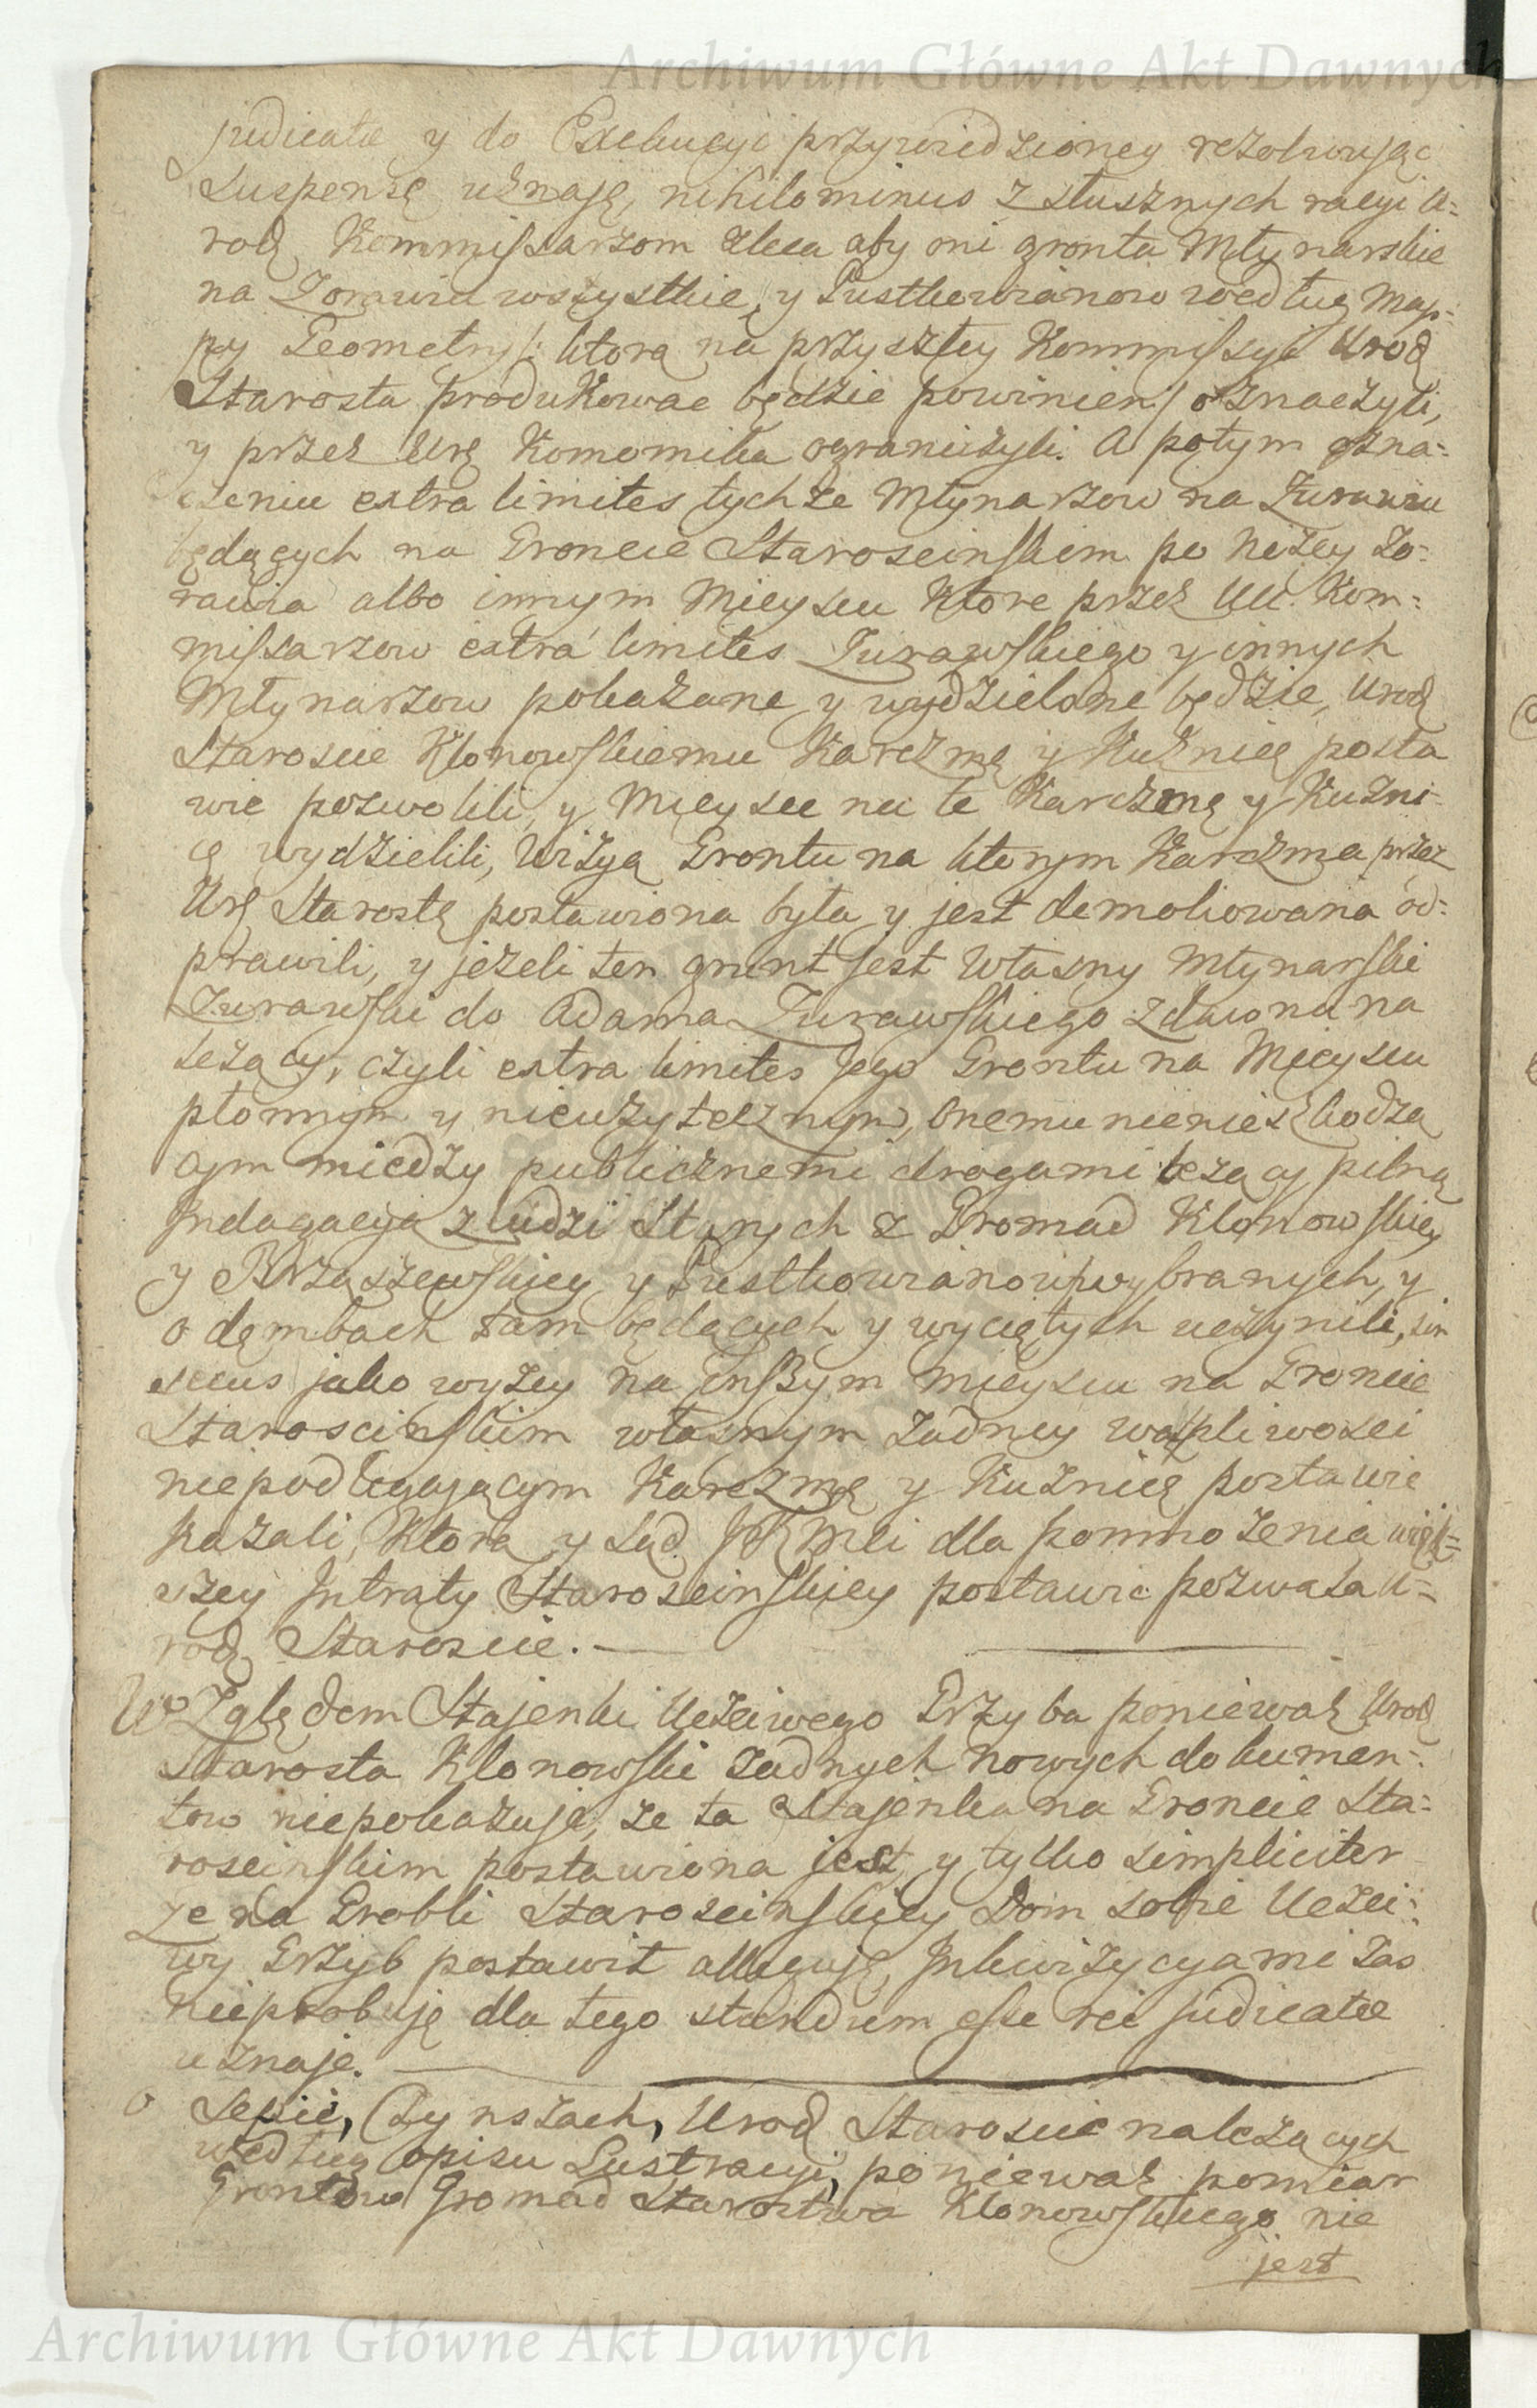 Archiwum Główne Akt Dawnych
judicatæ y do Exekucyi przywiedzioney rezolwując
suspensę uznają, nihilominus z słusznych racyi U=
rodz Kommissarzom zleca aby oni gronta Młynarskie
na Zorawiu wszystkie, y Pustkowianow według Map=
py Geometry /: ktorą na przyszłey Kommissyi Urodz
Starosta produkować będzie powinien / oznaczyli,
y przez Urg Komornika ograniczyli. A potym ozna=
czeniu extra limites tychże Młynarzow na Zurawiu
będących na Groncie Staroscinskim po niżey Zo=
rawia albo innym Mieyscu ktore przez UU. Kom=
missarzow extra limites Zurawskiego y innych
Młynarzow pokazane y wydzielone będzie, Urodz
Staroscie Klonowskiemu Karczmę y Kuźnię posta
wić pozwolili, y Mieysce na tę Karczmę y Kuzni
cę wydzielili, Wizyą Grontu na ktorym Karczma przez
Urg Starostę postawiona była y jest demoliowana od=
prawili, y jeżeli ten grunt jest własny Młynarski
Zurawski do Adama Zurawskiego zdawna na
leżący, czyli extra limites jego Grontu na Mieyscu
płonnym y nieużytecznym, onemu nienieszkodzą
cym między publicznemi drogami leżący pilną
Indagacyą z ludzi Starych z Gromad Klonowskiey
y Brząszewskiey y Pustkowianow wybranych, y
o dębach tam będących y wyciętych uczynili, sin
secus jako wyżey na inszym mieyscu na Groncie
Staroscinskim własnym żadney wątpliwosci
niepodlegającym Karczmę y Kuznię postawić
kazali, Ktorą y Sąd JKMci dla pomnożenia więk=
szey Intraty Staroscinskiey postawić pozwala U=
rodz Staroscie.
Względem Stajenki Uczciwego Grzyba ponieważ Urodz
Starosta Klonowski żadnych nowych dokumen=
tow niepokazuje, że ta Stajenka na Groncie Sta=
roscinskim postawiona jest, y tylko simpliciter
że na Grobli Staroscinskiey Dom sobie Uczci=
wy Grzyb postawił alleguje, Inkwizycyami zas
nieprobuje dla tego standum esse rei judicatæ
uznaje.
o Sepie, Czynszach, Urodz Staroscie należących
według opisu Lustracyi, ponieważ pomiar
Grontow Gromad Starostwa Klonowskiego nie
jest
Archiwum Główne Akt Dawnych